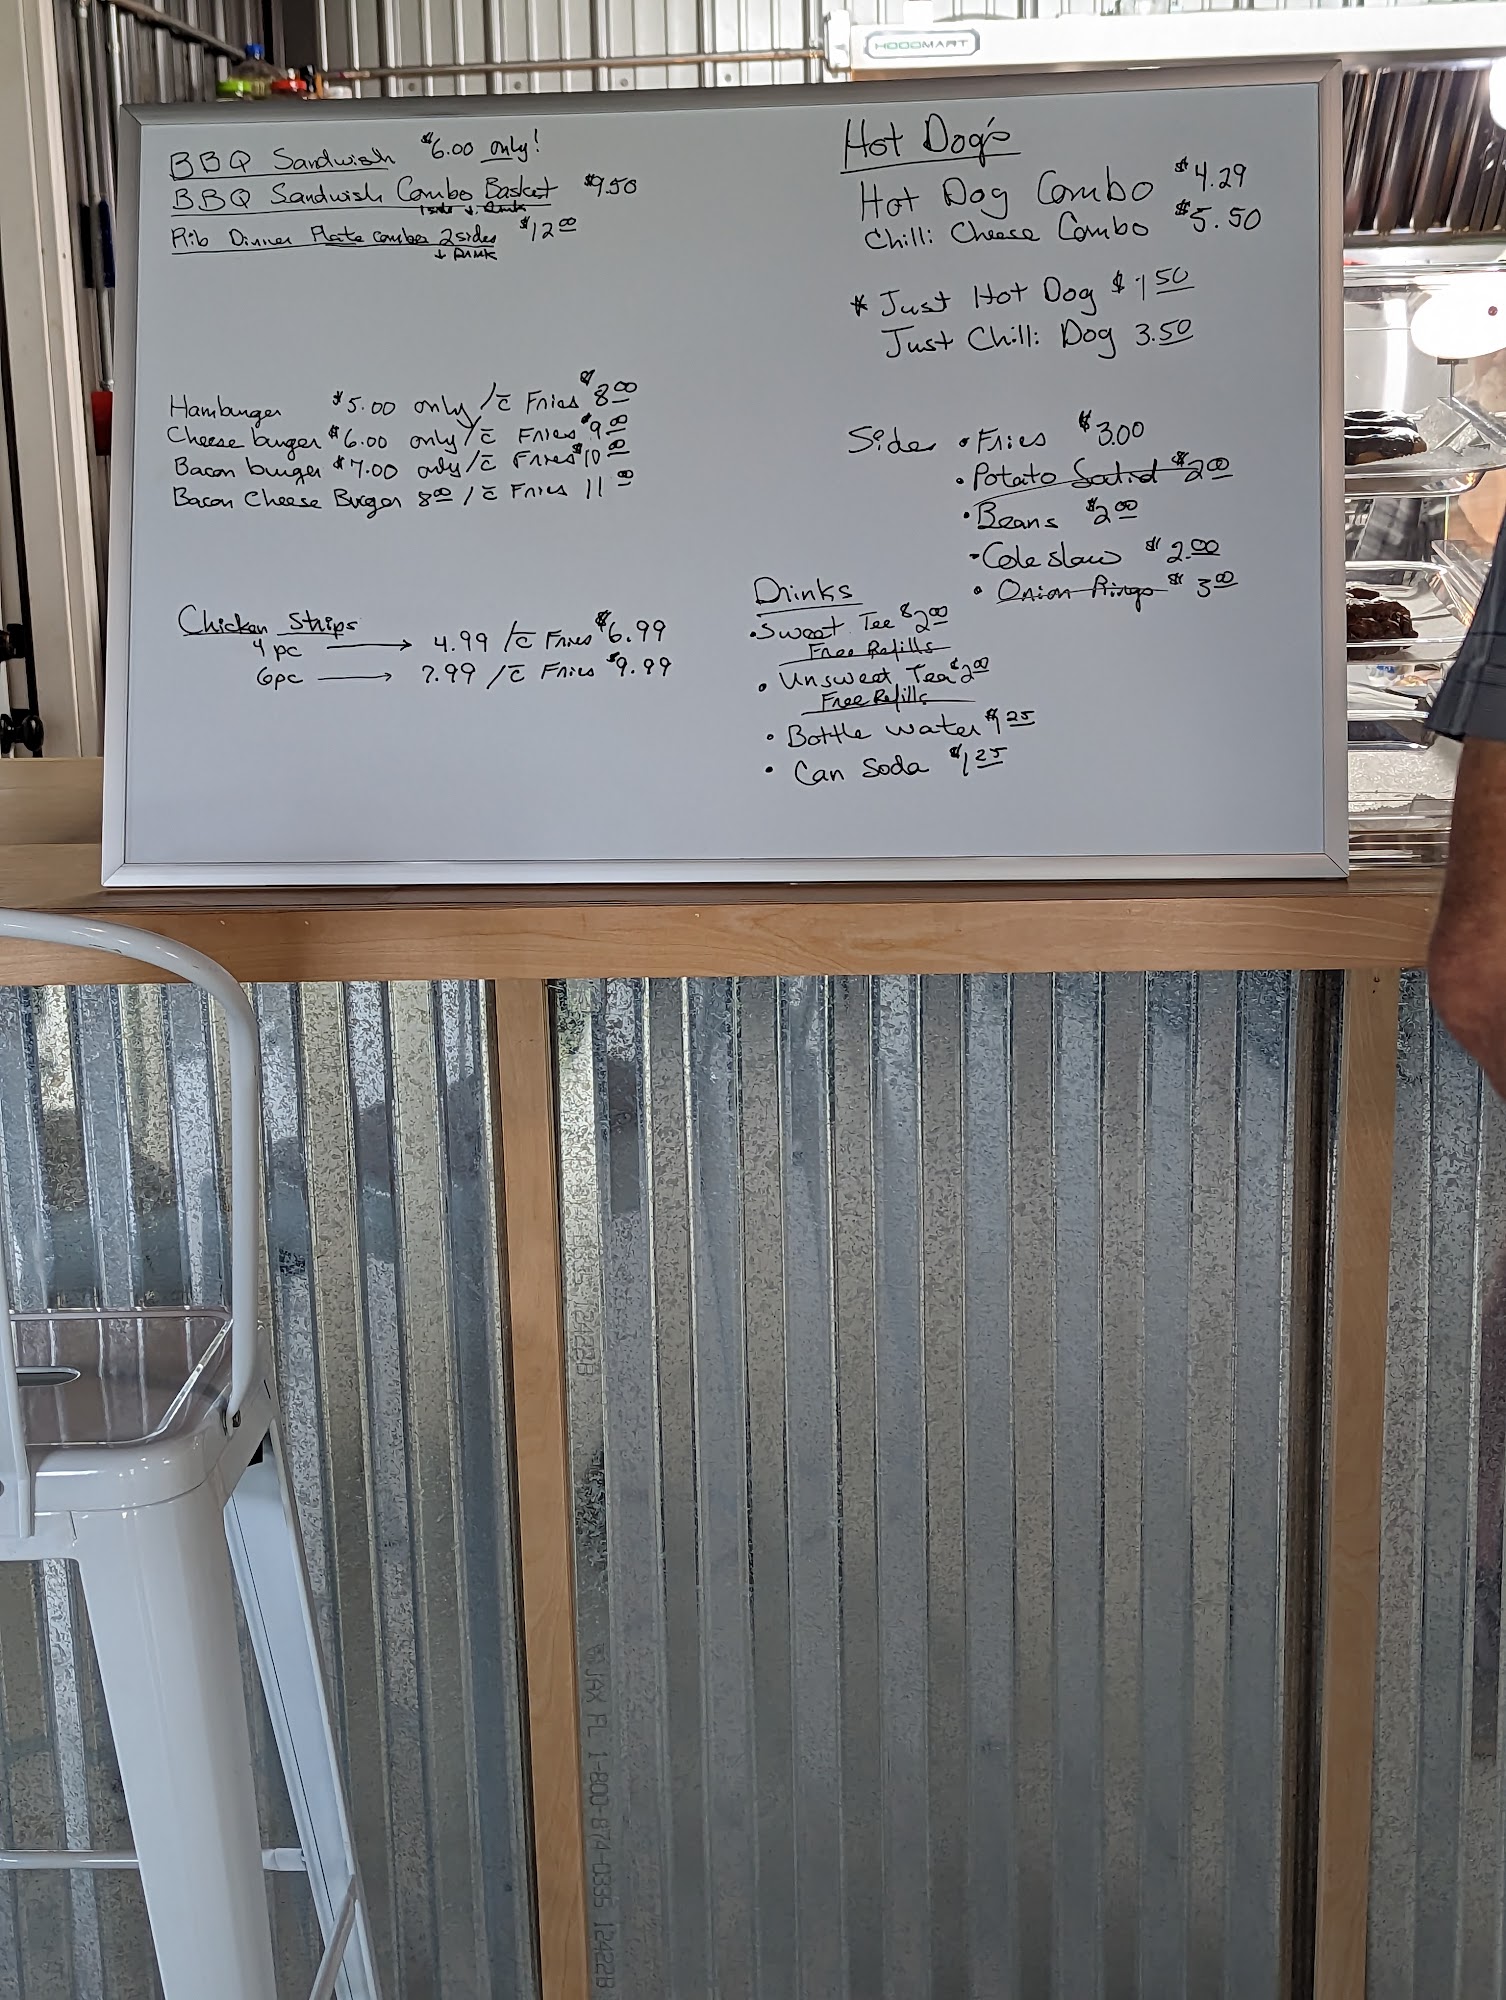 HOODMART
BBQ Sandwish $6.00 only!
BBQ Sandwish Combo Basket $9.50
1 side + drink
Rib Dinner Plate combo 2 sides $12.00
+ Drink
Hamburger $5.00 only / c̄ Fries $8.00
Cheese burger $6.00 only / c̄ Fries $9.00
Bacon burger $7.00 only / c̄ Fries $10.00
Bacon Cheese Burger 8.00 / c̄ Fries 11.00
Chicken Strips
4 pc → 4.99 / c̄ Fries $6.99
6pc → 7.99 / c̄ Fries $9.99
Hot Dog's
Hot Dog Combo $4.29
Chili Cheese Combo $5.50
* Just Hot Dog $1.50
Just Chili Dog 3.50
Sides • Fries $3.00
• Potato Salid $2.00
• Beans $2.00
- Coleslaw $2.00
• Onion Rings $3.00
Drinks
• Sweet Tee $2.00
Free Refills
• Unsweet Tea $2.00
Free Refills
• Bottle water $1.25
• Can Soda $1.25
12422B
JAX FL 1-800-874-0335 12422B